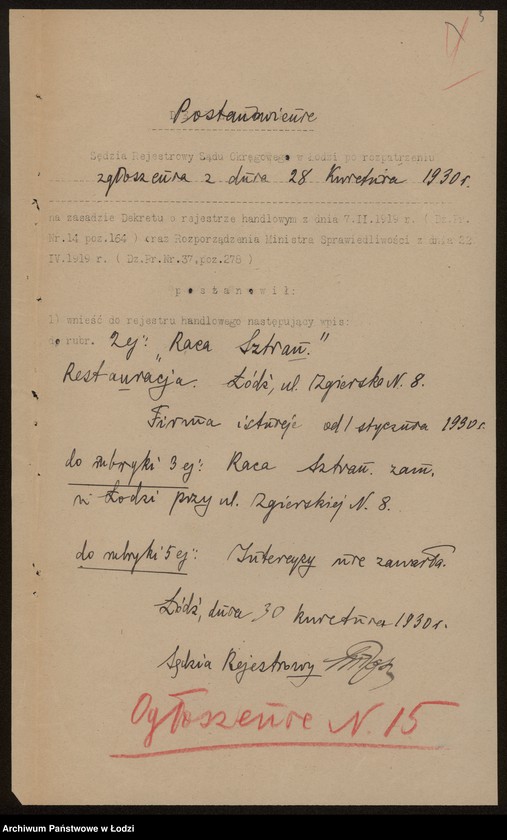 3
Postanowienie
Sędzia Rejestrowy Sądu Okręgowego w Łodzi po rozpatrzeniu
zgłoszenia z dnia 28 Kwietnia 1930 r.
na zasadzie Dekretu o rejestrze handlowym z dnia 7.II.1919 r. ( Dz.Pr.
Nr.14 poz.164 ) oraz Rozporządzenia Ministra Sprawiedliwości z dnia 22
IV.1919 r. ( Dz.Pr.Nr.37,poz.278 )
p o s t a n o w i ł :
1) wnieść do rejestru handlowego następujący wpis:
do rubr. 2ej: "Raca Sztrau."
Restauracja. Łódź, ul. Zgierska N. 8.
Firma istnieje od 1 stycznia 1930 r.
do rubryki 3 ej: Raca Sztrau. zam.
w Łodzi przy ul. Zgierskiej N. 8.
do rubryki 5 ej: Intercyzy nie zawarła.
Łódź, dnia 30 kwietnia 1930 r.
Sędzia Rejestrowy
Ogłoszenie N. 15
Archiwum Państwowe w Łodzi